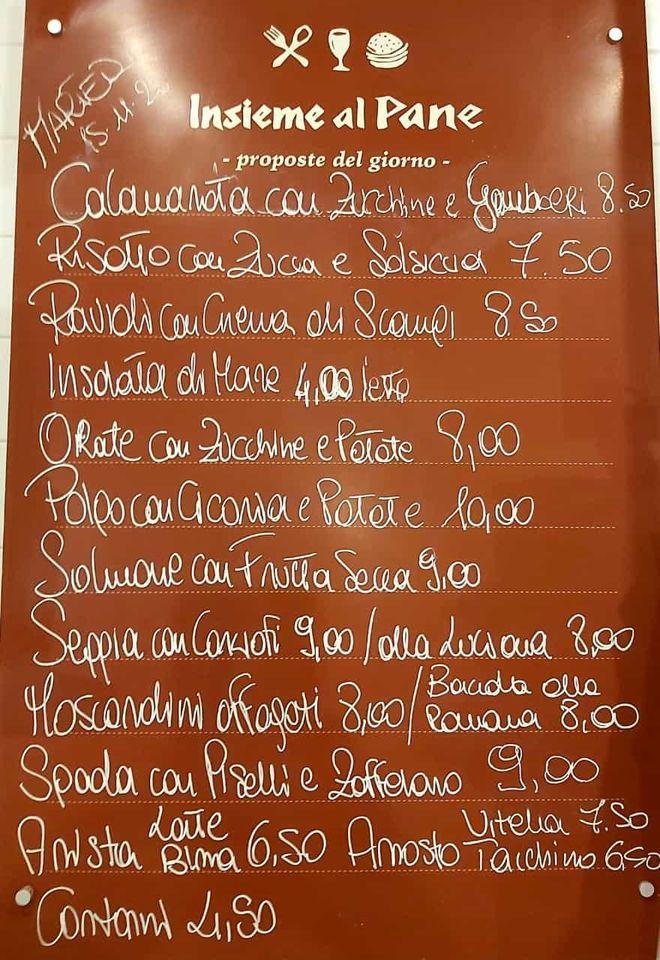 MARTED
15.11.2
Insieme al Pane
- proposte del giorno -
Calamarata con Zucchine e Gamberi 8.50
Risotto con Zucca e Salsiccia 7.50
Ravioli con Crema di Scampi 8.50
Insalata di Mare 4,00 letto
Orate con Zucchine e Patate 8,00
Polpo con Cicoria e Patate 10,00
Salmone con Frutta Secca 9,00
Seppia con Carciofi 9,00/alla Luciana 8,00
Moscardini affogati 8,00/Baccalà alla Romana 8,00
Spada con Piselli e Zafferano 9,00
Arista Latte Birra 6,50 Arrosto Vitella 7.50 Tacchino 6,50
Contorni 4,50